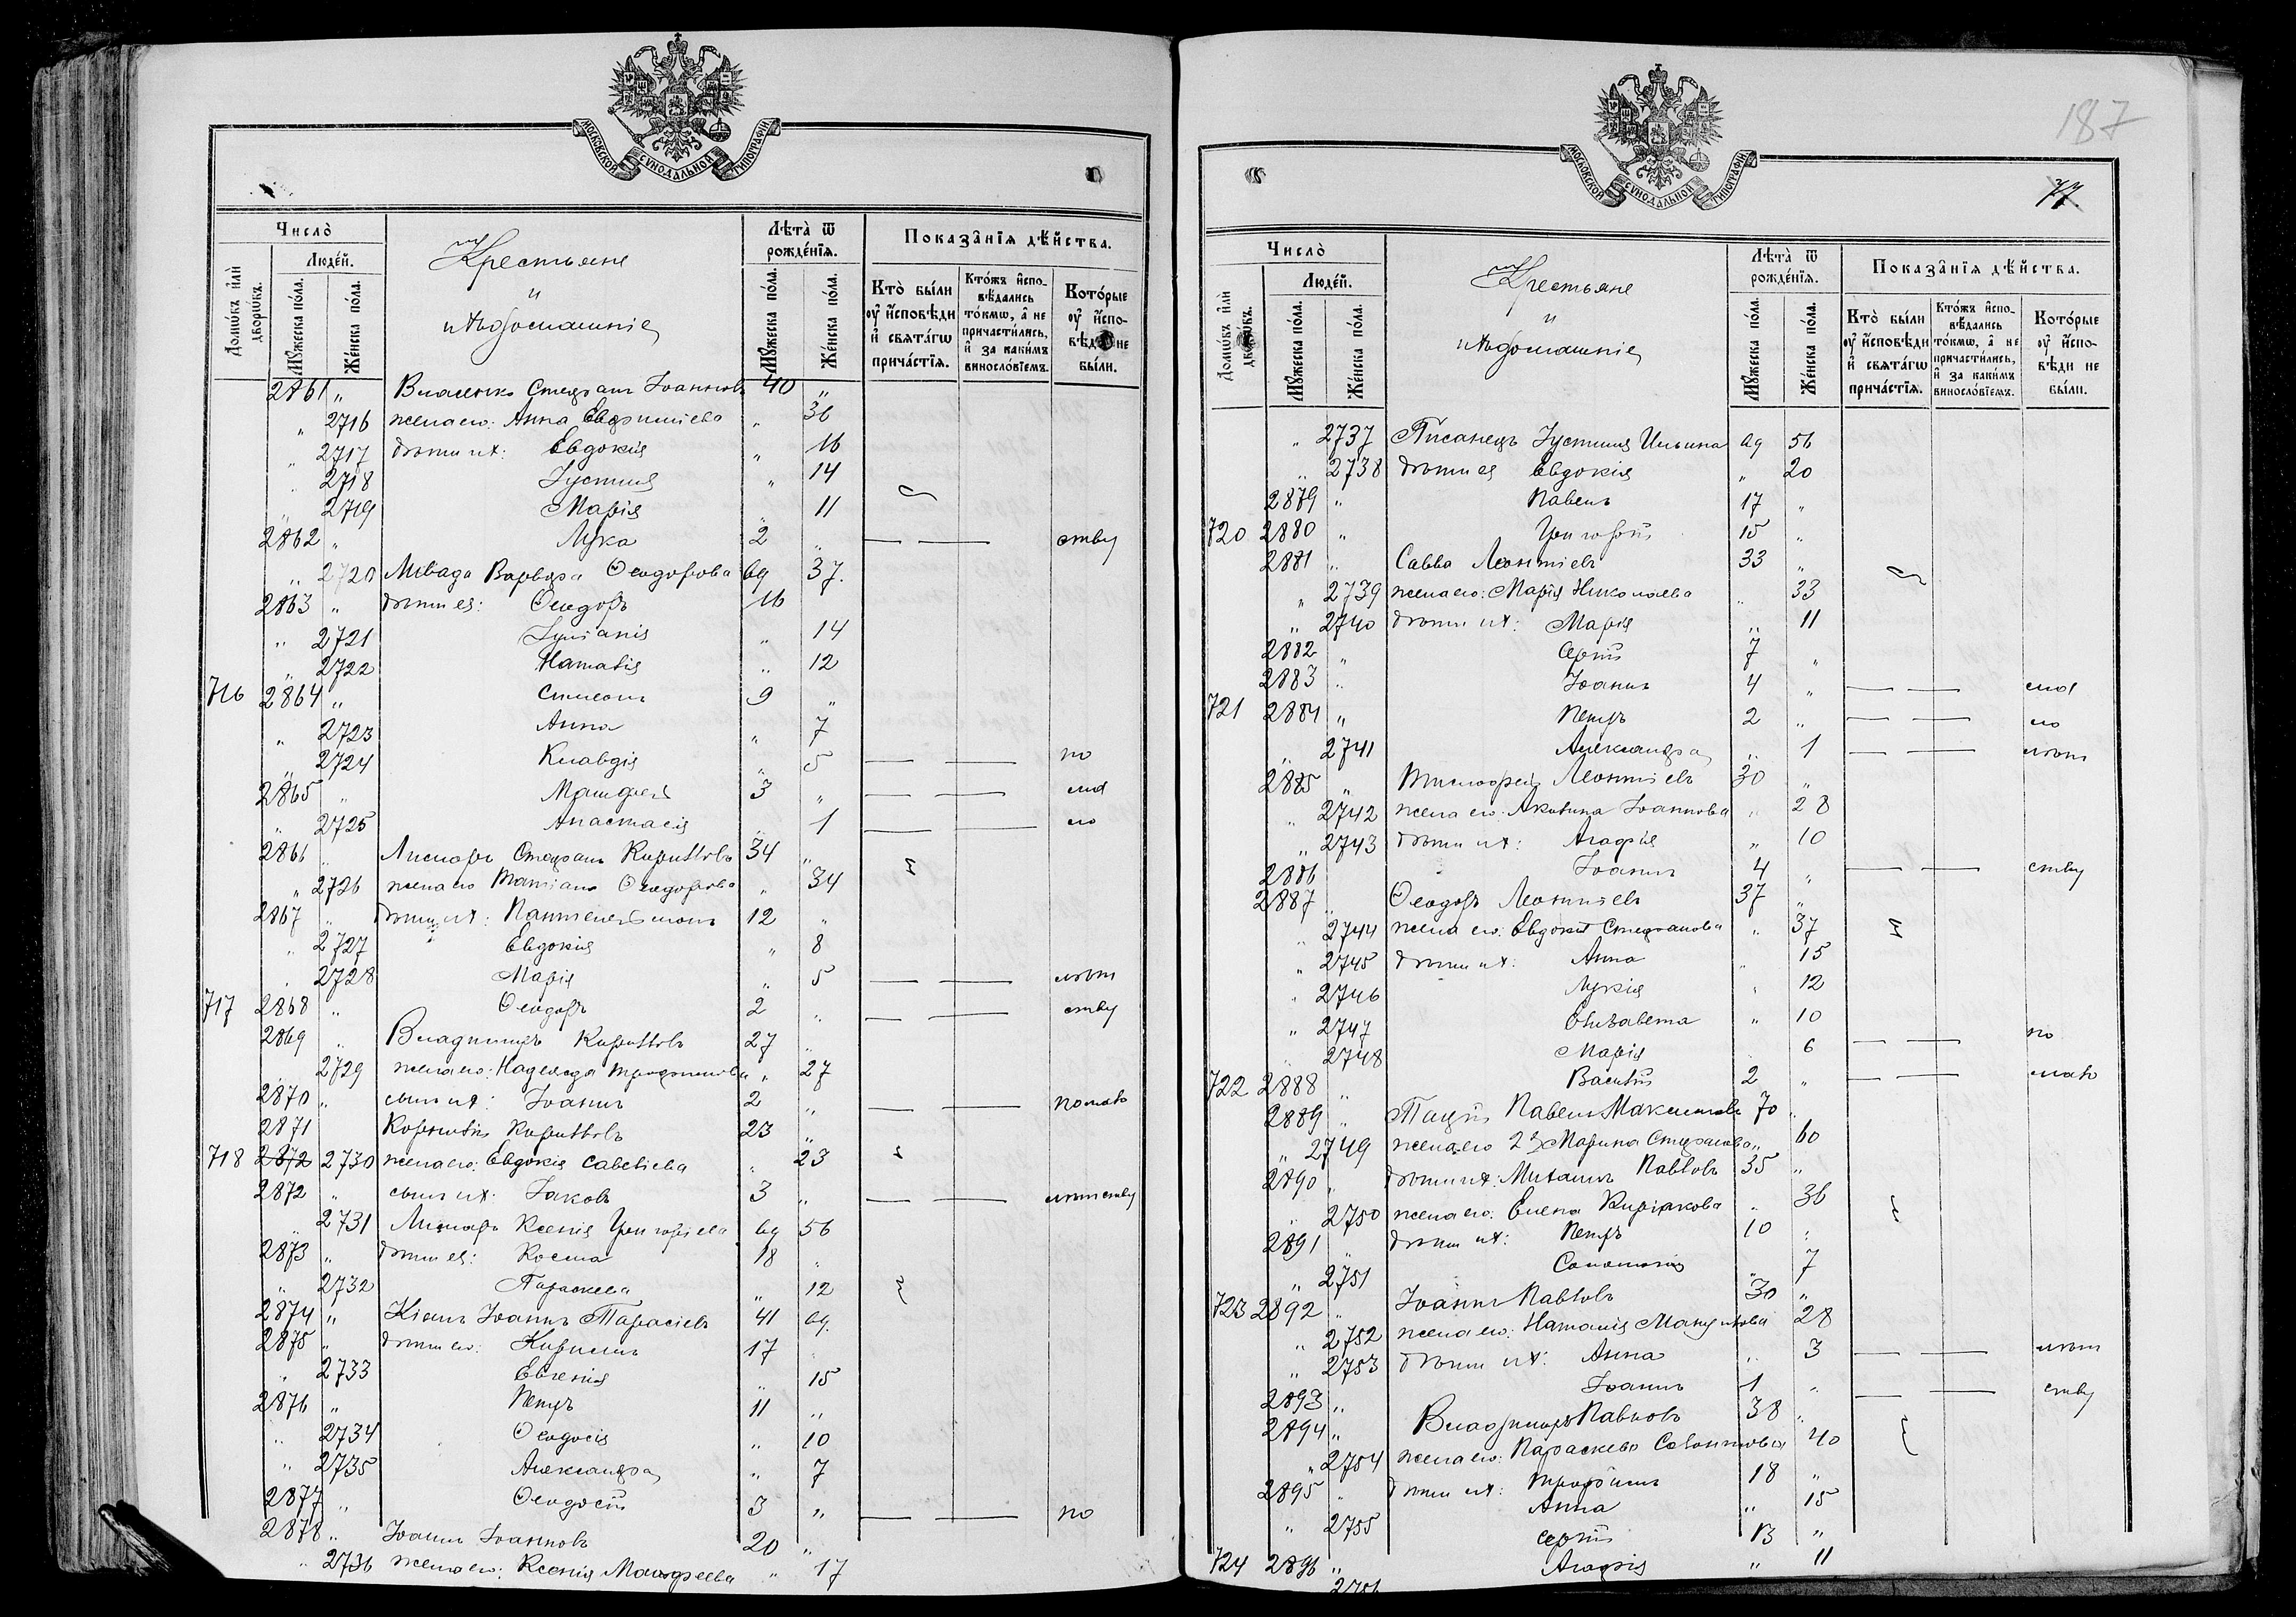 МОСКОВСКОЙ СѴНОДАЛЬНОЙ ТИПОГРАФІИ
Число̀
Домѡвъ и҆лѝ дворѡвъ.
Люде́й.
Мꙋ́жеска по́ла.
Же́нска по́ла.
Крестьяне
и
ихъ домашніе
Лѣ́та ѿ рожде́нїѧ.
Мꙋ́жеска по́ла.
Же́нска по́ла.
Показа̑нїѧ дѣ́йства.
Кто̀ бы́ли оу҆ и҆сповѣ́ди и҆ свѧта́гѡ прича́стїѧ.
Кто́жъ и҆сповѣ́дались то́кмѡ, а҆ не причасти́лись, и҆ за каки́мъ виносло́вїемъ.
Кото́рые оу҆ и҆сповѣ́ди не бы́ли.
2861 „ Стефанъ Іоанновъ 40 „
„ 2716 жена его: Анна 36
„ 2717 дѣти ихъ: Евдокія „ 16
„ 2718 Іустина „ 14
„ 2719 Марія „ 11
2862 „ Лука 2 „ — — ству
„ 2720 Варвара Ѳеодорова вд 37.
2863 „ дѣти ея: Ѳеодоръ 16
„ 2721 „ 14
„ 2722 Наталія „ 12
716 2864 „ Симеонъ 9 „
„ 2723 Анна „ 7
„ 2724 Клавдія „ 5 — — по
2865 „ Матѳей 3 „ — — мла
„ 2725 Анастасія „ 1 — — ло
2866 „ Стефанъ Кирилловъ 34 „
„ 2726 жена его Татіана Ѳеодорова „ 34
2867 „ дѣти ихъ: Пантелеимонъ 12 „
„ 2727 Евдокія „ 8
„ 2728 Марія „ 5 — — лѣт
717 2868 „ Ѳеодоръ 2 „ — — ству
2869 „ Владиміръ Кирилловъ 27 „
2729 жена его: Надежда Трофимова „ 27
2870 „ сынъ ихъ: Іоаннъ 2 „ — — помало
2871 Корнилій Кирилловъ 23 „
718 2872 2730 жена его: Евдокія Савельева „ 23
2872 „ сынъ ихъ: Іаковъ 3 „ — — лѣтству
„ 2731 Ксенія Григоріева вд 56
2873 „ дѣти ея: Косма 18 „
„ 2732 Параскева „ 12
2874 „ Іоаннъ Тарасіевъ 41 вд.
2875 „ дѣти его: Кириллъ 17
„ 2733 Евгенія „ 15
2876 „ Петръ 11 „
„ 2734 Ѳеодосія „ 10
„ 2735 Александра „ 7
2877 „ Ѳеодосій 3 „ — — по
2878 „ Іоаннъ Іоанновъ 20 „
„ 2736 жена его: Ксенія Матѳеева „ 17
187
МОСКОВСКОЙ СѴНОДАЛЬНОЙ ТИПОГРАФІИ
77
Число̀
Домѡвъ и҆лѝ дворѡвъ.
Люде́й.
Мꙋ́жеска по́ла.
Же́нска по́ла.
Крестьяне
и
ихъ домашніе
Лѣ́та ѿ рожде́нїѧ.
Мꙋ́жеска по́ла.
Же́нска по́ла.
Показа̑нїѧ дѣ́йства.
Кто̀ бы́ли оу҆ и҆сповѣ́ди и҆ свѧта́гѡ прича́стїѧ.
Кто́жъ и҆сповѣ́дались то́кмѡ, а҆ не причасти́лись, и҆ за каки́мъ виносло́вїемъ.
Кото́рые оу҆ и҆сповѣ́ди не бы́ли.
„ 2737 Писанецъ Іустина Ильина вд 56
„ 2738 дѣти ея Евдокія „ 20
2879 „ Павелъ 17 „
720 2880 „ Григорій 15 „
2881 „ Савва Леонтіевъ 33 „
„ 2739 жена его: Марія Николаева „ 33
„ 2740 дѣти ихъ: Марія „ 11
2882 „ Сергій 7 „
2883 „ Іоаннъ 4 „ — — мла
721 2884 „ Петръ 2 „ — — ло
„ 2741 Александра „ 1 — — лѣт
2885 „ Тимофей Леонтіевъ 30 „
„ 2742 жена его: Акилина Іоаннова „ 28
„ 2743 дѣти ихъ: Агафія „ 10
2886 Іоаннъ 4 „ — — ству
2887 „ Ѳеодоръ Леонтіевъ 37 „
„ 2744 жена его: Евдокія Стефанова „ 37
„ 2745 дѣти ихъ: Анна „ 15
„ 2746 Лукія „ 12
„ 2747 Елизавета „ 10
„ 2748 Марія 6 — — по
722 2888 „ Василій 2 „ — — мало
2889 „ Павелъ Максимовъ 70 „
„ 2749 жена его 2я Марина Стефанова „ 60
2890 „ дѣти ихъ: Михаилъ Павловъ 35 „
„ 2750 жена его: Елена Киріакова „ 36
2891 „ дѣти ихъ: Петръ 10 „
„ 2751 Соломонія „ 7
723 2892 „ Іоаннъ Павловъ 30 „
„ 2752 жена его: Наталія Мануилова 28
„ 2753 дѣти ихъ: Анна „ 3 — — лѣт
2893 „ Іоаннъ 1 „ — — ству
2894 „ Владиміръ Павловъ 38 „
„ 2754 жена его: Параскева 40
2895 „ дѣти ихъ: Трофимъ 18 „
„ 2755 Анна „ 15
Сергій 13 „
724 2896 „ Агафія „ 11